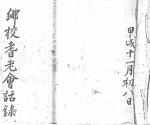 甲戌十一月初八日
鄉校耆老會話錄